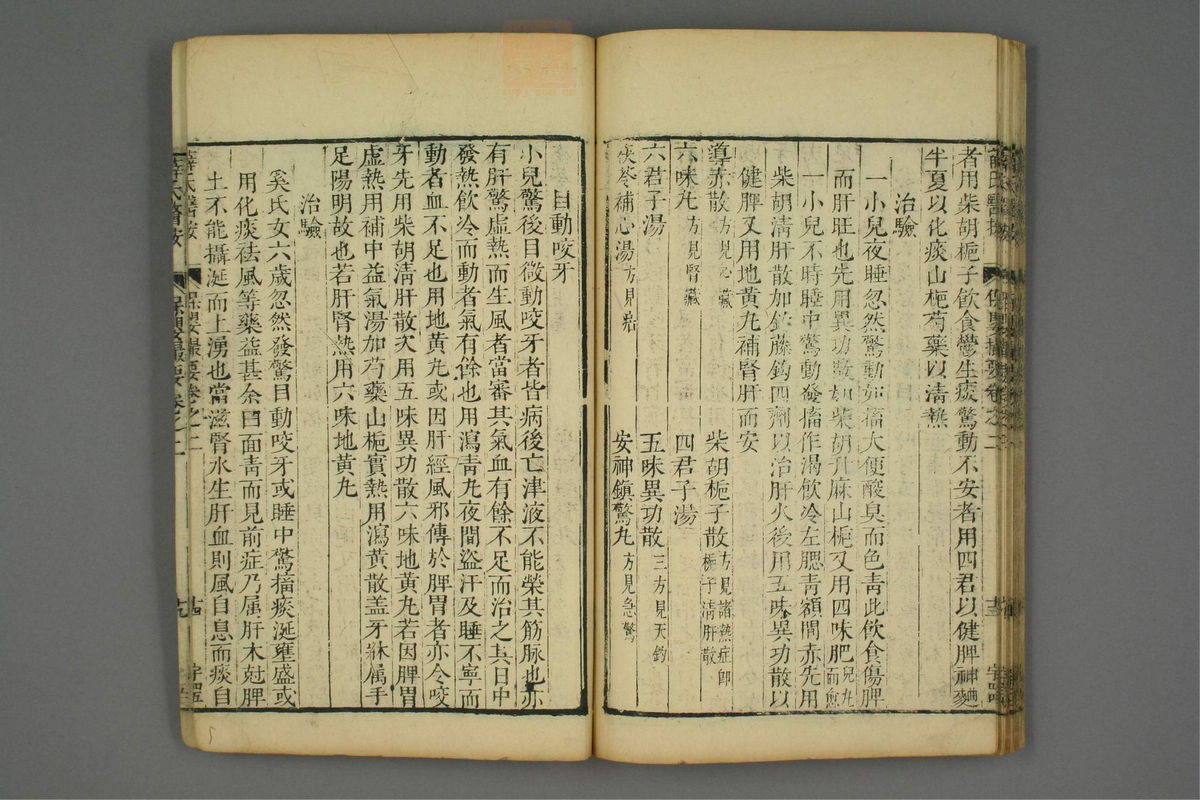 者用柴胡梔子飲食鬱生痰驚動不安者用四君以健脾神麯
半夏以化痰山梔芍藥以清熱
治驗
一小兒夜睡忽然驚動如搐大便酸臭而色青此飲食傷脾
而肝旺也先用異功散加柴胡升麻山梔又用四味肥兒丸而愈
一小兒不時睡中驚動發搐作渴飲冷左腮青額間赤先用
柴胡清肝散加鈎藤鈎四劑以治肝火後用五味異功散以
健脾又用地黄丸補腎肝而安
導赤散方見心臟 柴胡梔子散方見諸熱症即梔子清肝散
六味丸方見腎臟 四君子湯
六君子湯 五味異功散三方見天釣
茯苓補心湯方見 安神鎮驚丸方見急驚
目動咬牙
小兒驚後目微動咬牙者皆病後亡津液不能榮其筋脉也亦
有肝驚虛熱而生風者當審其氣血有餘不足而治之其日中
發熱飲冷而動者氣有餘也用瀉青丸夜間盜汗及睡不寧而
動者血不足也用地黄丸或因肝經風邪傳於脾胃者亦令咬
牙先用柴胡清肝散次用五味異功散六味地黄丸若因脾胃
虛熱用補中益氣湯加芍藥山梔實熱用瀉黄散盖牙牀属手
足陽明故也若肝腎熱用六味地黄丸
治驗
奚氏女六歲忽然發驚目動咬牙或睡中驚搐痰涎壅盛或
用化痰祛風等藥益甚余曰面青而見前症乃属肝木尅脾
土不能攝涎而上湧也當滋腎水生肝血則風自息而痰自
薛氏醫按 保嬰撮要卷之二